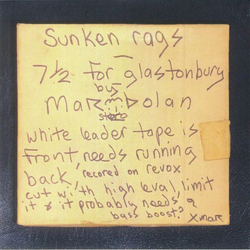 Sunken rags
7 1/2 for glastonbury
by
Marc Bolan
white leader tape is
front, needs running
back, recored on revox
cut with high leval, limit
it & it probably needs a
bass boost? Xmarc